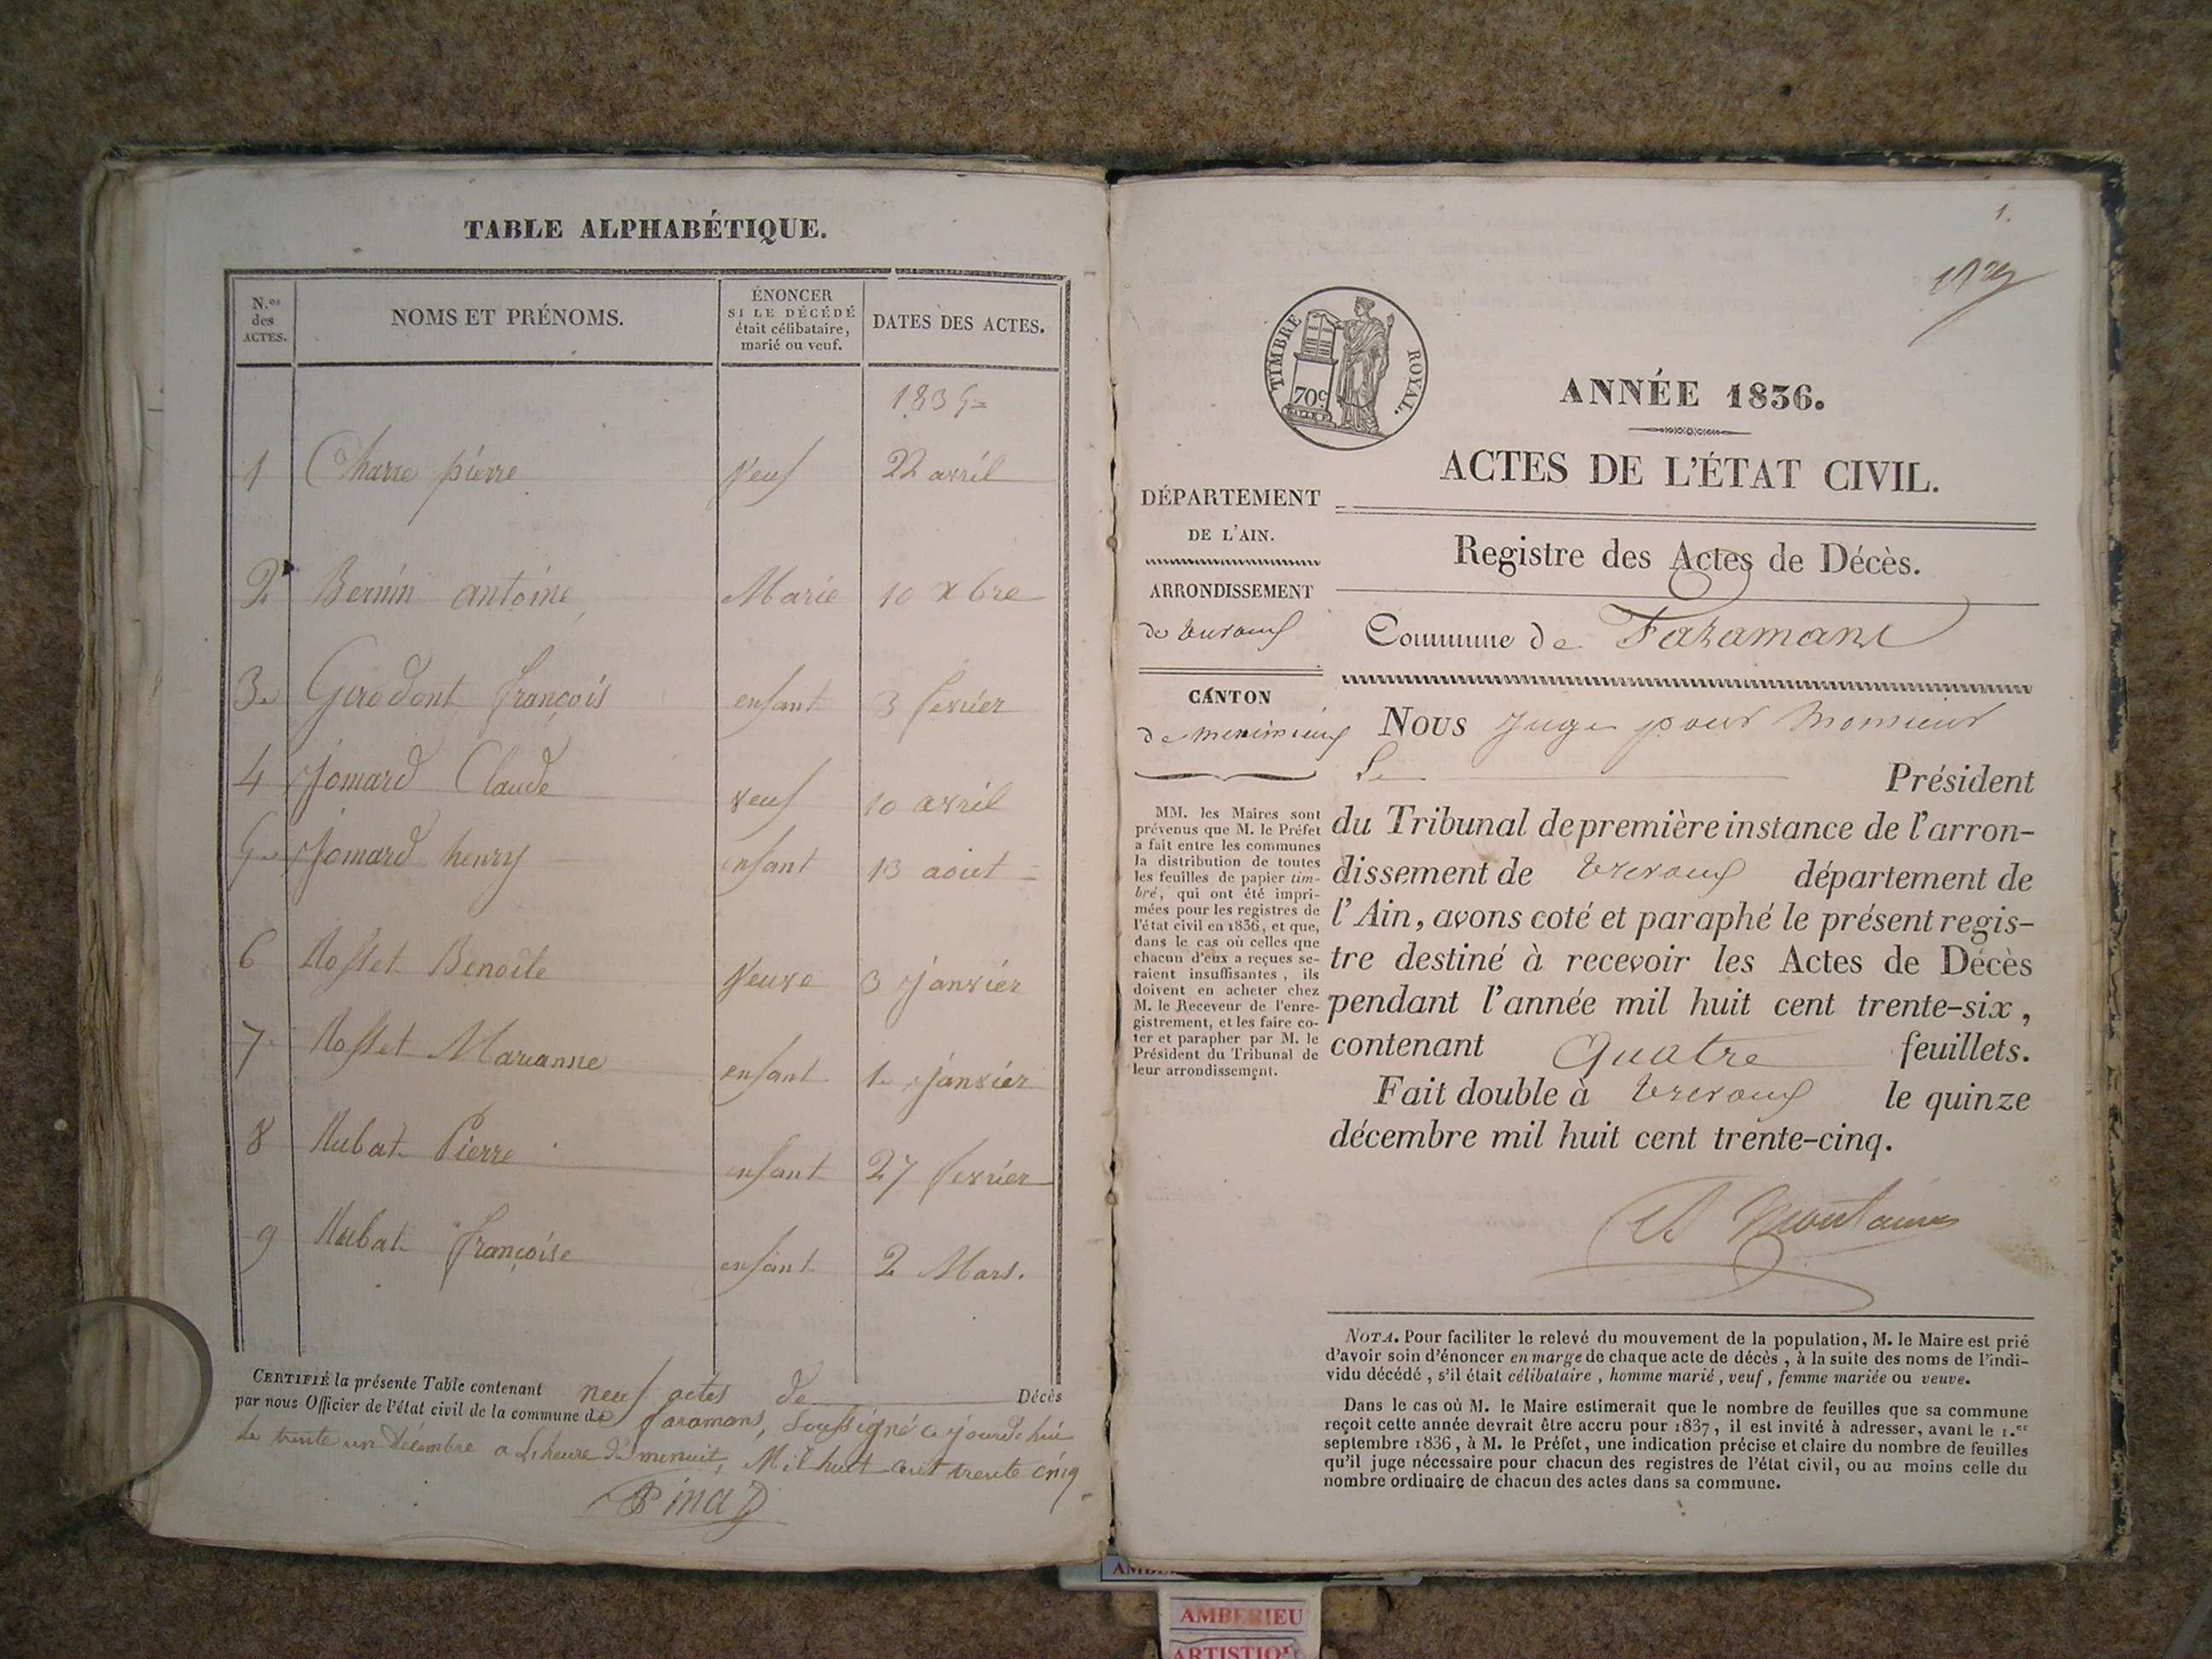 TABLE ALPHABÉTIQUE.
N.os des ACTES.
NOMS ET PRÉNOMS.
ÉNONCER
SI LE DÉCÉDÉ
était célibataire,
marié ou veuf.
DATES DES ACTES.
1835
1 Charre pierre Veuf 22 avril
2 Bernin antoine Marié 10 Xbre
3 Girodont françois enfant 3 fevrier
4 Jomard Claude veuf 10 avril
5 Jomard henry enfant 13 aout
6 Rosset Benoite Veuve 3 janvier
7 Rosset Marianne enfant 1 janvier
8 Rubat Pierre enfant 27 fevrier
9 Rubat françoise enfant 2 Mars.
CERTIFIÉ la présente Table contenant neuf actes de Décès
par nous Officier de l'état civil de la commune de faramans, Soussigné ce jourdehui
le trente un Décembre a heure de minuit, Mil huit cent trente cinq
1.
ANNÉE 1836.
TIMBRE ROYAL.
70c.
ACTES DE L'ÉTAT CIVIL.
DÉPARTEMENT
DE L'AIN.
Registre des Actes de Décès.
ARRONDISSEMENT
de trevoux
Commune de Faramans
CANTON
de meximieux
Nous Juge pour Monsieur
Le Président
du Tribunal de première instance de l'arron-
dissement de trevoux département de
l'Ain, avons coté et paraphé le présent regis-
tre destiné à recevoir les Actes de Décès
pendant l'année mil huit cent trente-six,
contenant Quatre feuillets.
Fait double à trevoux le quinze
décembre mil huit cent trente-cinq.
MM. les Maires sont
prévenus que M. le Préfet
a fait entre les communes
la distribution de toutes
les feuilles de papier tim-
bré, qui ont été impri-
mées pour les registres de
l'état civil en 1836, et que,
dans le cas où celles que
chacun d'eux a reçues se-
raient insuffisantes, ils
doivent en acheter chez
M. le Receveur de l'enre-
gistrement, et les faire co-
ter et parapher par M. le
Président du Tribunal de
leur arrondissement.
NOTA. Pour faciliter le relevé du mouvement de la population, M. le Maire est prié
d'avoir soin d'énoncer en marge de chaque acte de décès, à la suite des noms de l'indi-
vidu décédé, s'il était célibataire, homme marié, veuf, femme mariée ou veuve.
Dans le cas où M. le Maire estimerait que le nombre de feuilles que sa commune
reçoit cette année devrait être accru pour 1837, il est invité à adresser, avant le 1.er
septembre 1836, à M. le Préfet, une indication précise et claire du nombre de feuilles
qu'il juge nécessaire pour chacun des registres de l'état civil, ou au moins celle du
nombre ordinaire de chacun des actes dans sa commune.
AMBERIEU